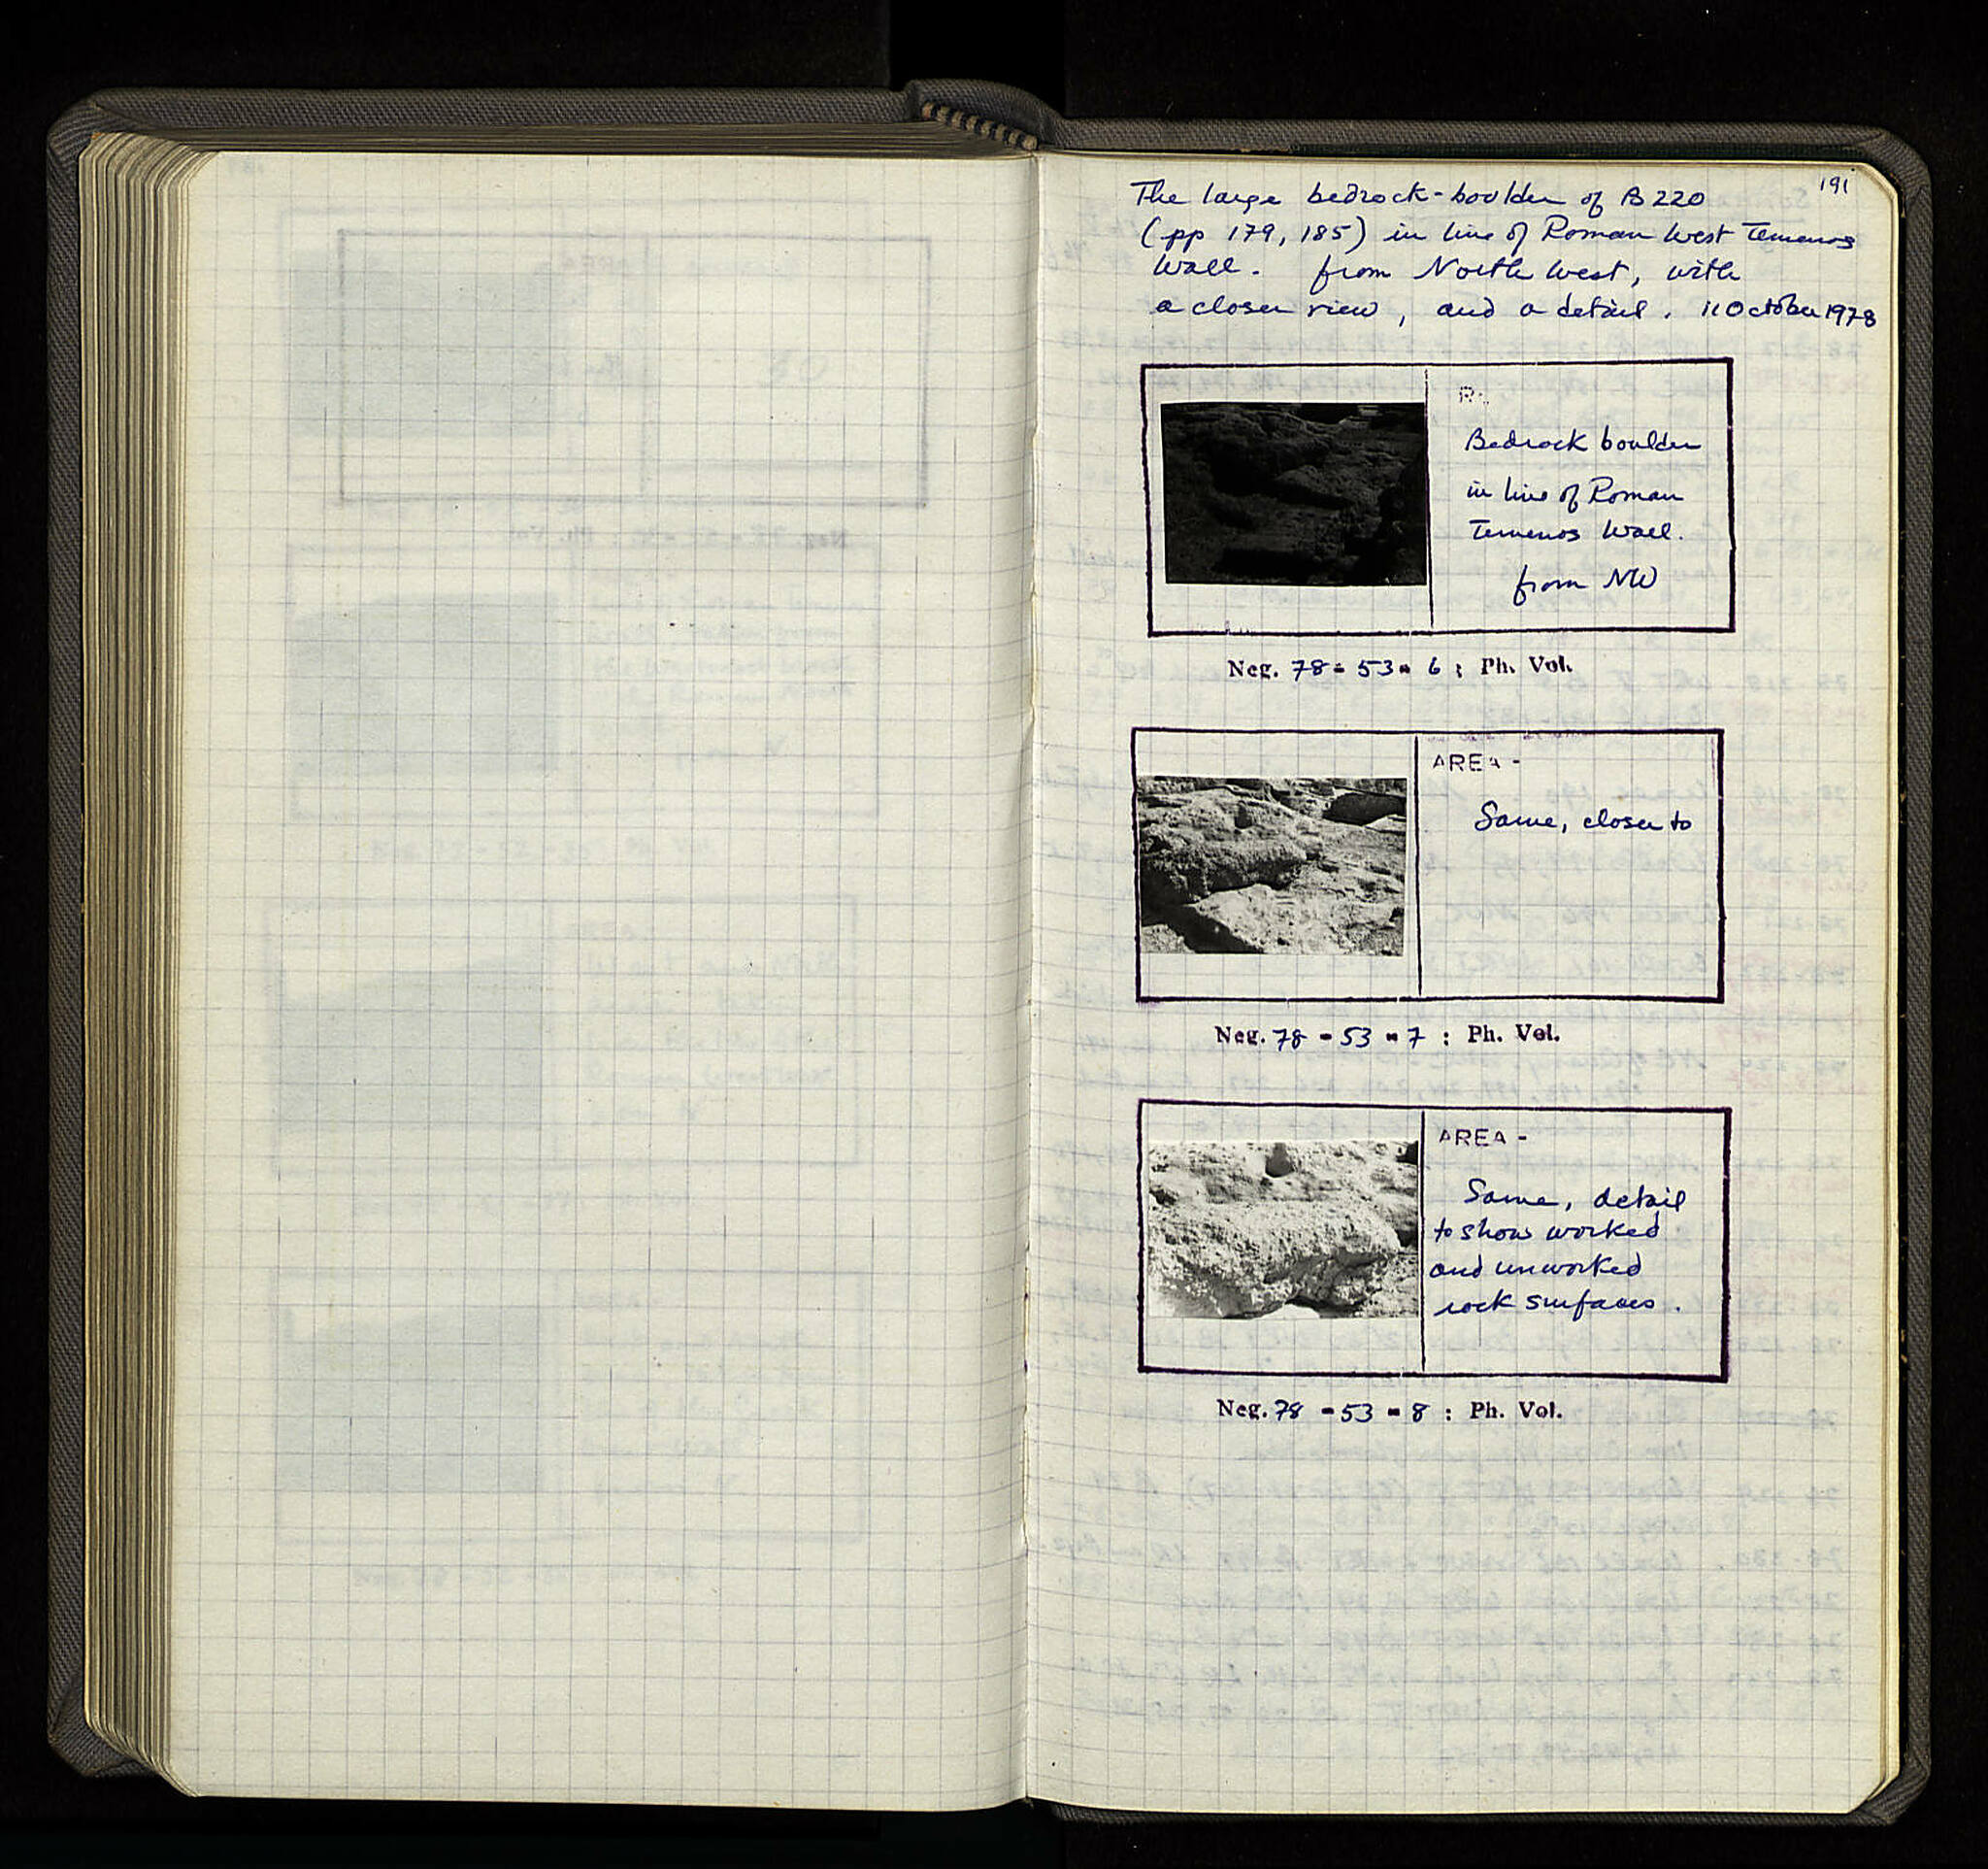 191
The large bedrock-boulder of B 220
(pp 179, 185) in line of Roman West Temenos
Wall. from North West, with
a closer view, and a detail. 11 October 1978
Bedrock boulder
in line of Roman
Temenos Wall.
from NW
Neg. 78-53-6 : Ph. Vol.
AREA -
Same, closer to
Neg. 78-53-7 : Ph. Vol.
AREA -
Same, detail
to show worked
and unworked
rock surfaces.
Neg. 78-53-8 : Ph. Vol.